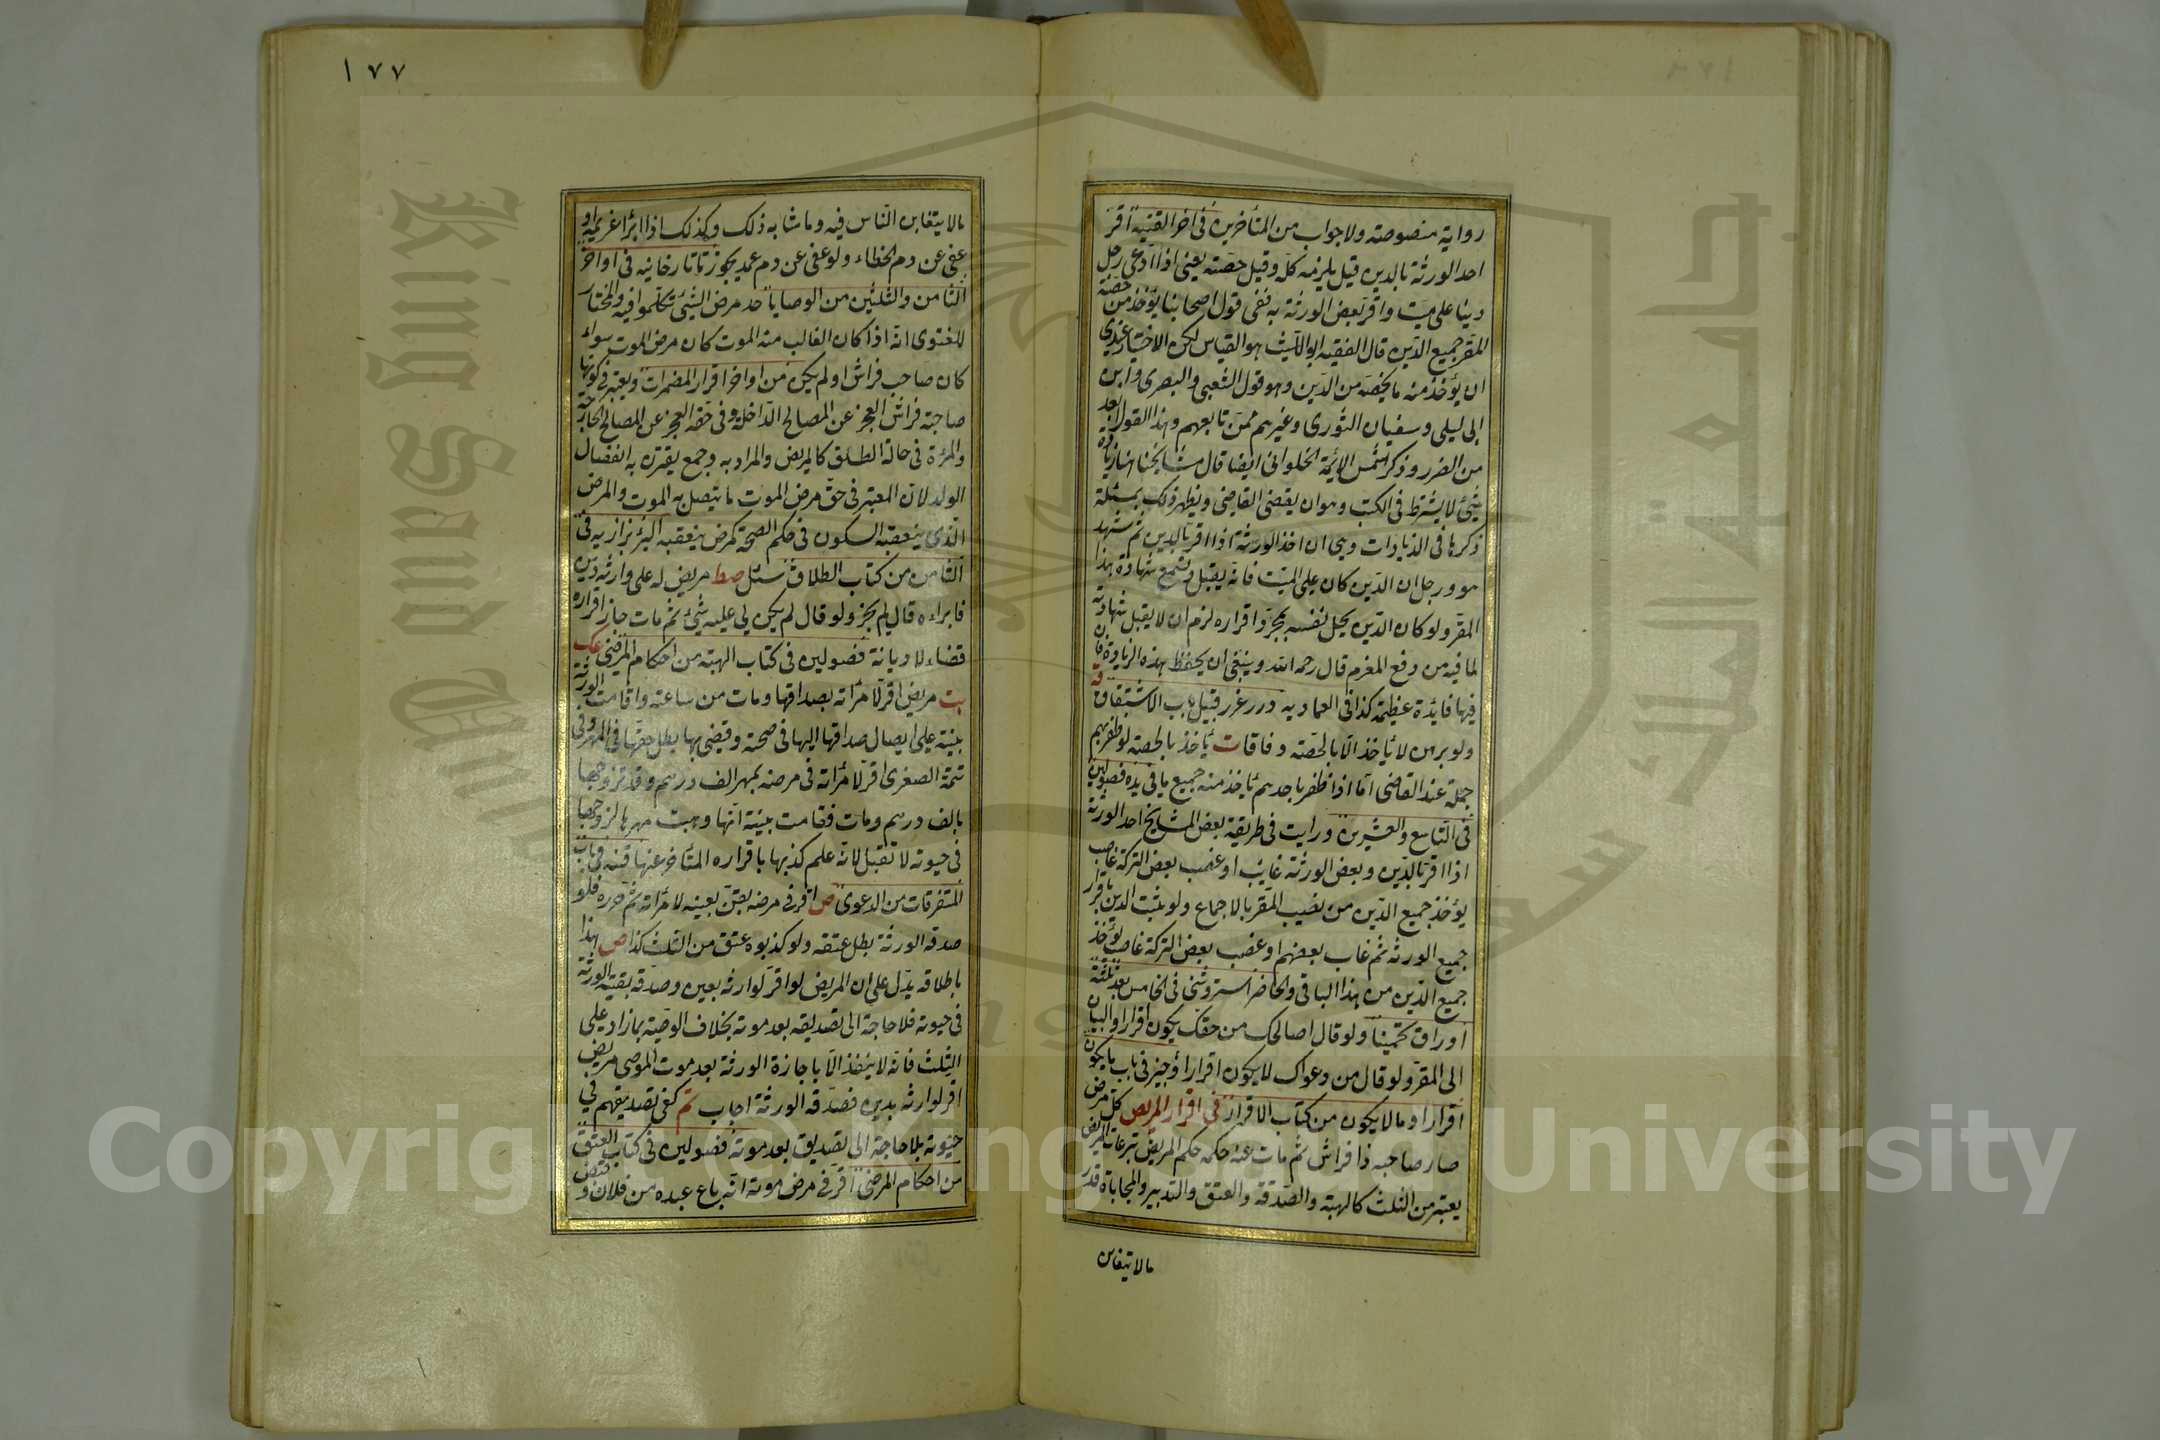 رواية منصوصته ولا جواب من المتأخرين في اخر القنية اقر
احد الورثة بالدين قيل يلزمه كله وقيل حصته يعنى اذا ادعى رجل
دينا على ميت واقر بعض الورثة به ففى قول اصحابنا يؤخذ من حصة
المقر جميع الدين قال الفقيه ابو الليث هو القياس لكن الاختيار عندى
ان يؤخذ منه ما يخصه من الدين وهو قول الشعبى والبصرى وابن
ابى ليلى وسفيان الثورى وغيرهم ممن تابعهم وهذا القول ابعد
من الضرر وذكر شمس الائمة الحلوانى ايضا قال مشايخنا هنا زيادة
شئ لا يشترط فى الكتب وهو ان يقضى القاضى ويظهر ذلك بمسئلة
ذكرها فى الزيادات وهى ان احد الورثة اذا اقر بالدين ثم شهد
هو ورجل ان الدين كان على الميت فانه يقبل وتسمع شهادة هذا
المقر ولو كان الدين يحل نفسه بمجرد اقراره لزم ان لا يقبل شهادته
لما فيه من دفع المغرم قال رحمه الله وينبغى ان يحفظ هذه الزيادة فان
فيها فائدة عظيمة كذا فى العمادية درر غرر قبيل باب الاستثناء قه
ولو برهن لا يأخذ الا بالحصته وفاقا ت يأخذ بالحصته لو ظفر بهم
جملة عند القاضى اما اذا ظفر باحدهم يأخذ منه جميع ما فى يده فصولين
فى التاسع والعشرين ورايت فى طريقة بعض المشايخ احد الورثة
اذا اقر بالدين وبعض الورثة غايب او غصب بعض التركة غاصب
يؤخذ جميع الدين من نصيب المقر بالاجماع ولو يثبت الدين باقرار
جميع الورثه ثم غاب بعضهم او غصب بعض التركة غاصب يؤخذ
جميع الدين من هذا الباقى والحاضر استروشنى فى الخامس بعد ثلثة
اوراق تخمينا ولو قال اصالحك من حقك يكون اقرارا والبيان
الى المقر ولو قال من دعواك لا يكون اقرارا وجيز فى باب ما يكون
اقرارا وما لا يكون من كتاب الاقرار فى اقرار المريض كل مرض
صار صاحبه ذا فراش ثم مات عنه حكمه حكم المريض تبرعات المريض
يعتبر من الثلث كالهبته والصدقة والعتق والتدبير والمحاباة قدر
مالا يتغابن
١٧٧
مالا يتغابن الناس فيه وما شابه ذلك وكذلك اذا ابرأ غريمه او
عفى عن دم الخطاء ولو عفى عن دم عمد يجوز تاتارخانيه فى اواخر
الثامن والثلثين من الوصايا حد مرض الشيئ تكلموا فيه والمختار
للفتوى انه اذا كان الغالب منه الموت كان مرض الموت سواء
كان صاحب فراش او لم يكن من اواخر اقرار المضمرات ويعتبر فى كونها
صاحبة فراش العجز عن المصالح الداخلة وفى حقه العجز عن المصالح الخارجة
والمرءة فى حالة الطلق كالمريض والمراد به وجمع يقترن به انفصال
الولد لان المعتبر فى حق مرض الموت ما يتصل به الموت والمرض
الذى يتعقبه السكون فى حكم الصحة كمرض يتعقبه البرء بزازيه فى
الثامن من كتاب الطلاق سئل صط مريض له على وارثه دين
فابراءه قال لم يجز ولو قال لم يكن لى عليه شئ ثم مات جاز اقراره
قضاء لا ديانة فصولين فى كتاب الهبته من احكام المرضى عك
بت مريض اقر لامرأته بصداقها ومات من ساعته واقامت الورثة
بينة على ايصال صداقها اليها فى صحته وقيضى بها يبطل حقها فى المهر وفى
تتمة الصغرى اقر لامرأته فى مرضه بمهر الف درهم وقد تزوجها
بالف درهم ومات فقامت بينة انها وهبت مهرها لزوجها
فى حيوته لا تقبل لانه علم كذبها باقراره المتأخر عنها قنيه فى باب
المتفرقات من الدعوى ص اقر فى مرضه بقن بعينه لامرأته ثم حرره فلو
صدقه الورثة بطل عتقه ولو كذبوه عتق من الثلث كذا ص بهذا
باطلاقه يدل على ان المريض لو اقر لوارثه بعين وصدقه بقية الورثة
فى حيوته فلا حاجة الى تصديقه بعد موته بخلاف الوصية بما زاد على
الثلث فانه لا ينفذ الا باجازة الورثة بعد موت الموصى مريض
اقر لوارثه بدين فصدقه الورثة اجاب تم كفى تصديقهم فى
حيوته بلا حاجة الى تصديق بعد موته فصولين فى كتاب العتق
من احكام المرضى اقر فى مرض موته انه باع عبده من فلان وقبض
King Saud University
جامعة الملك سعود
Copyright © King Saud University